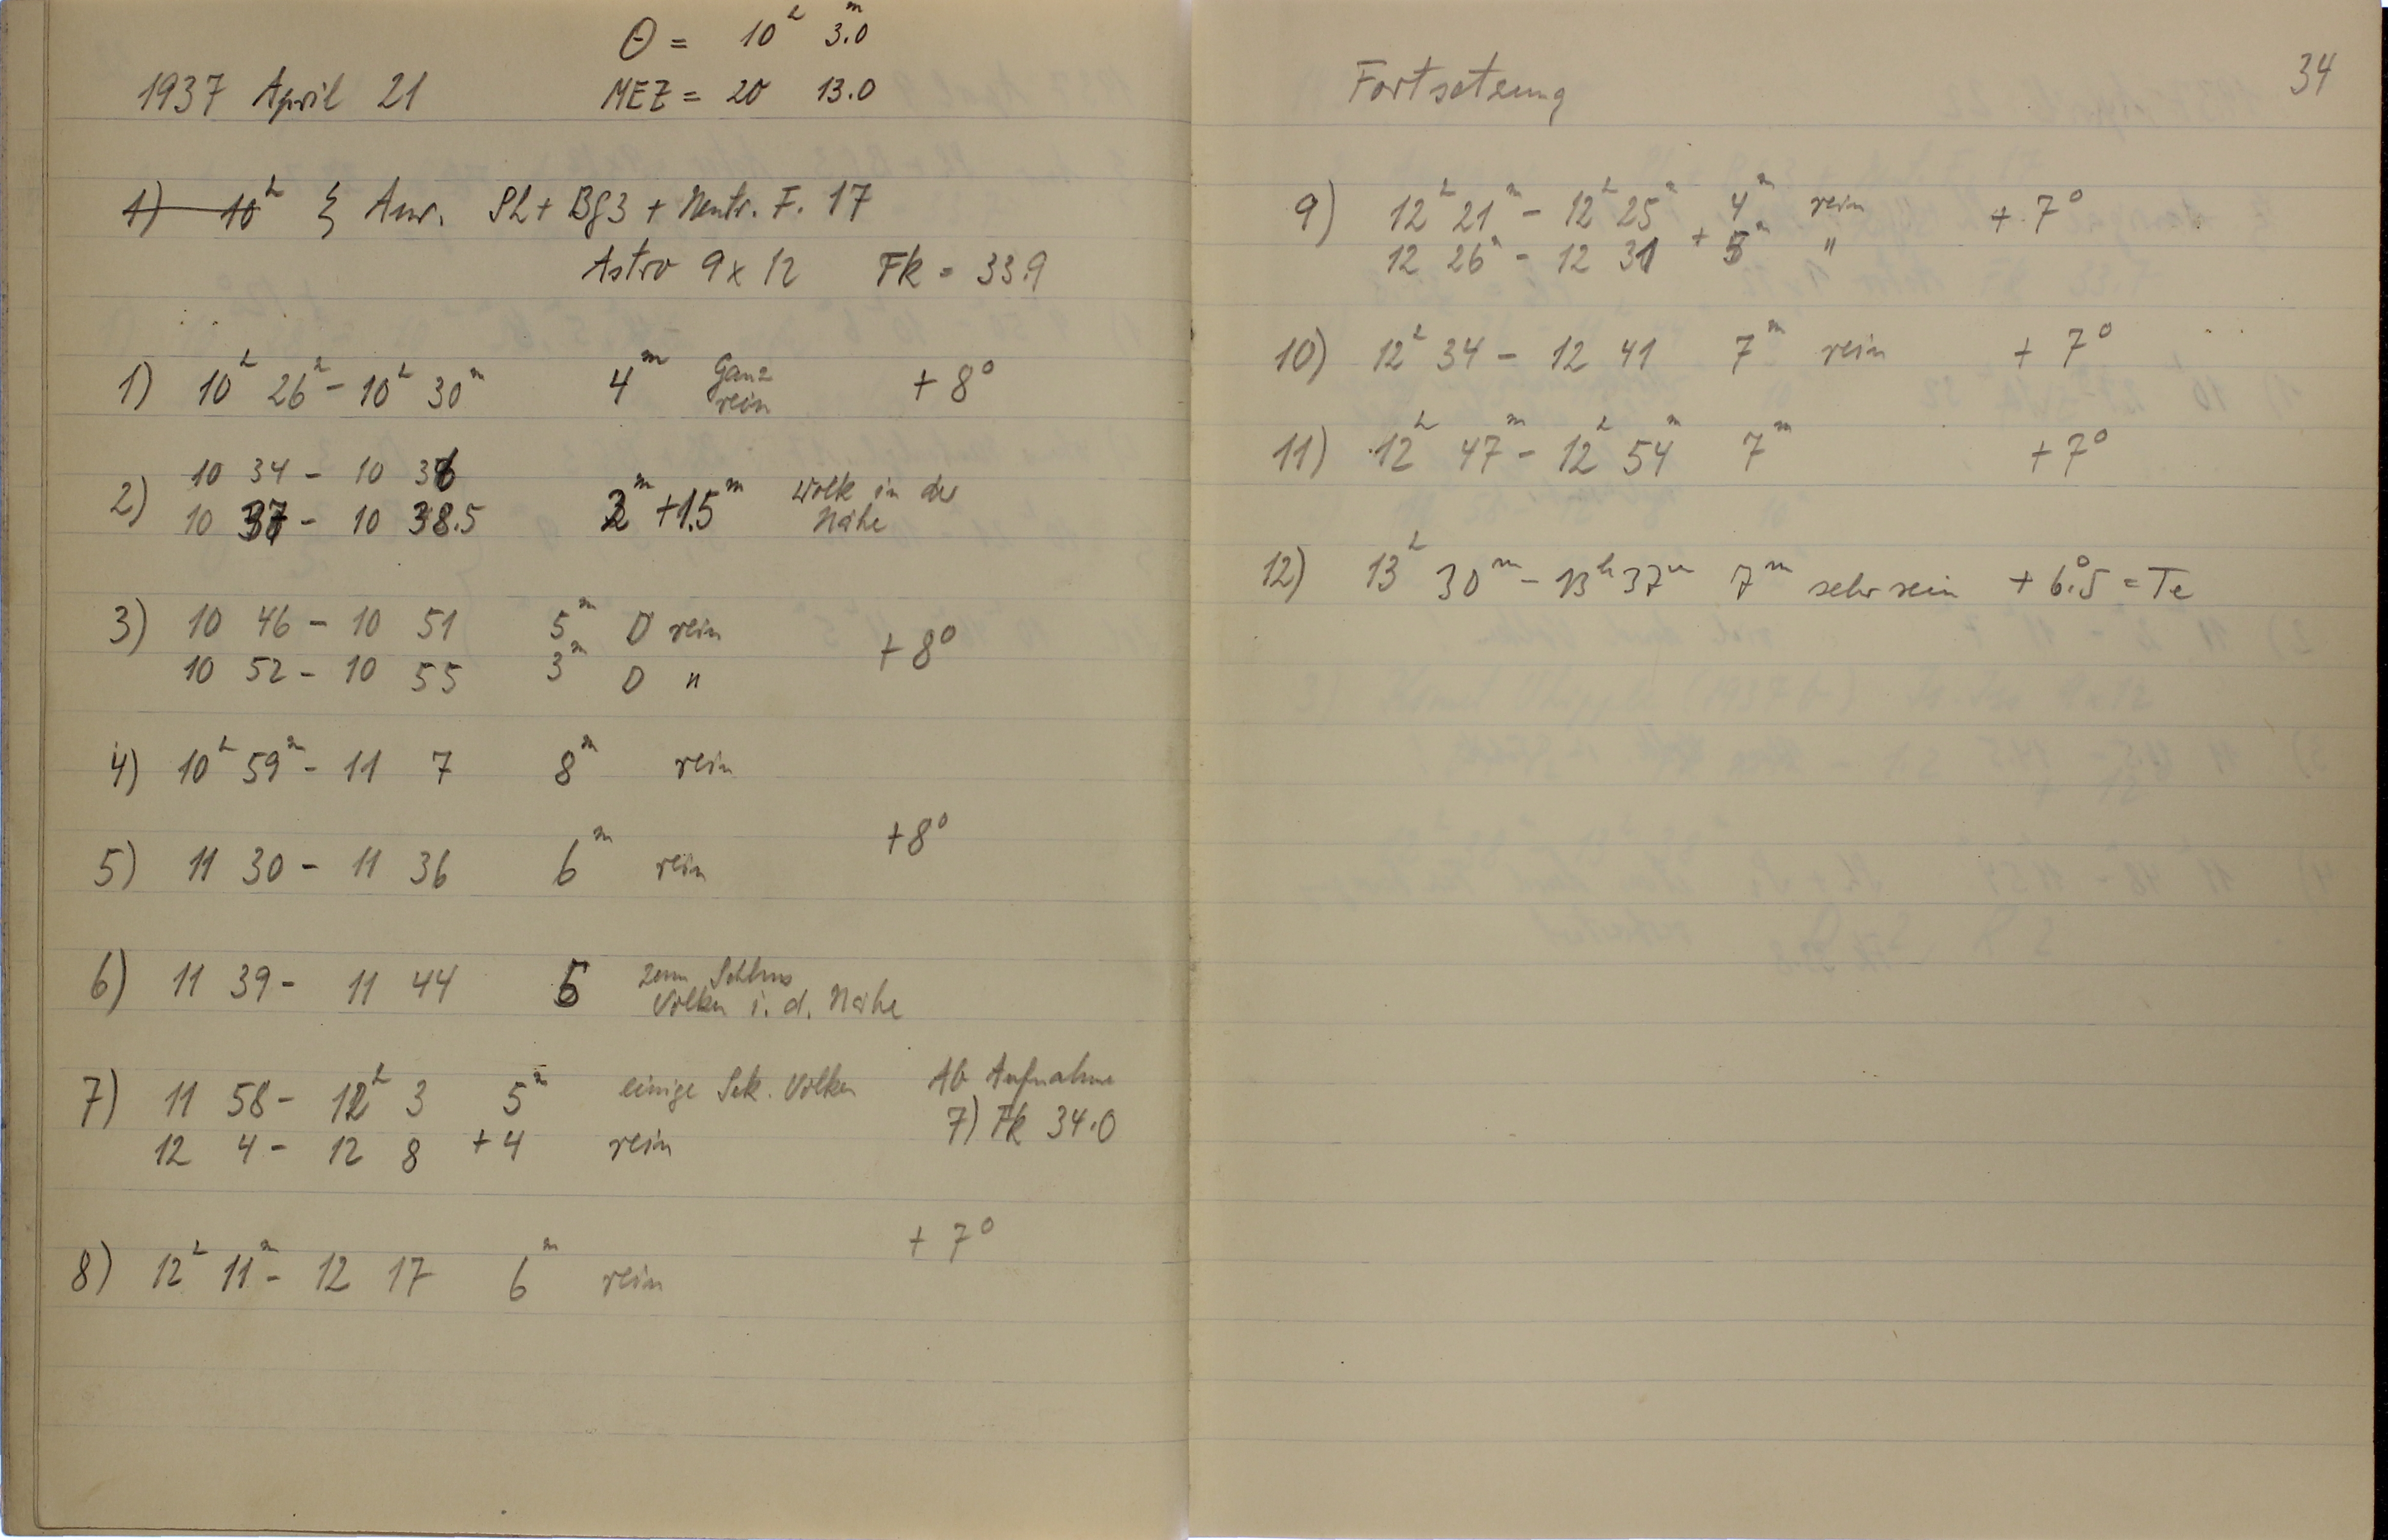 Θ = 10ʰ 3.0ᵐ
1937 April 21 MEZ = 20 13.0
1) 10ʰ ξ Aur. Sh + Bg3 + Neutr. F. 17
Astro 9 x 12 Fk = 33.9
1) 10ʰ 26ᵐ - 10ʰ 30ᵐ 4ᵐ Ganz rein + 8°
10 34 - 10 36
2) 10 37 - 10 38.5 2ᵐ + 1.5ᵐ Wolk in der Nähe
3) 10 46 - 10 51 5ᵐ D rein
10 52 - 10 55 3ᵐ D " + 8°
4) 10ʰ 59ᵐ - 11 7 8ᵐ rein
5) 11 30 - 11 36 6ᵐ rein + 8°
6) 11 39 - 11 44 5 zum Schluss Wolken i. d. Nähe
7) 11 58 - 12ʰ 3 5ᵐ einige Sek. Wolken Ab Aufnahme
12 4 - 12 8 + 4 rein 7) Fk 34.0
8) 12ʰ 11ᵐ - 12 17 6ᵐ rein + 7°
Fortsetzung 34
9) 12ʰ 21ᵐ - 12ʰ 25ᵐ 4ᵐ rein + 7°
12 26ᵐ - 12 31 + 5ᵐ "
10) 12ʰ 34 - 12 41 7ᵐ rein + 7°
11) 12ʰ 47ᵐ - 12ʰ 54ᵐ 7ᵐ + 7°
12) 13ʰ 30ᵐ - 13ʰ 37ᵐ 7ᵐ sehr rein + 6.°5 = Te